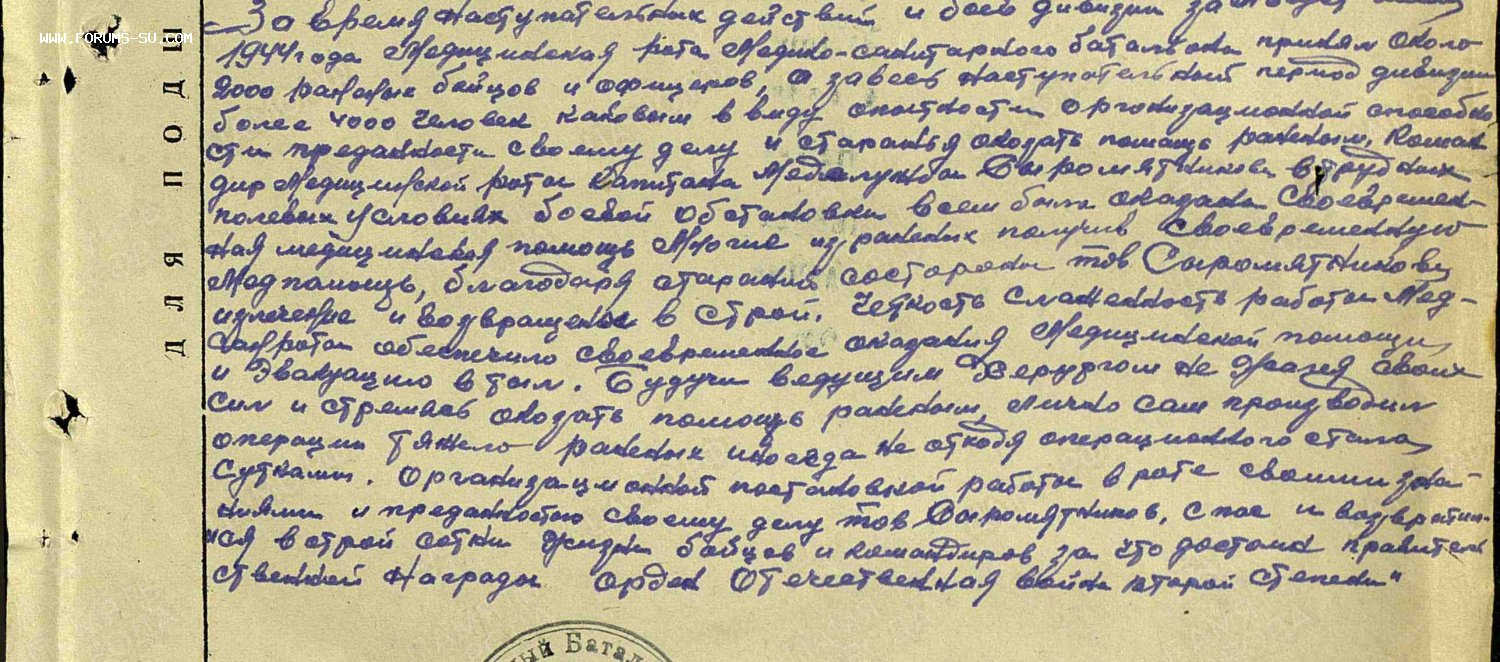 WWW.FORUMS-SU.COM
ДЛЯ ПОДШ
За время наступательных действий и боев дивизии за
1944 года Медицинская рота Медико-санитарного батальона принял около
2000 раненых бойцов и офицеров, а за весь наступательный период дивизии
более 4000 человек каковым в виду опытности организационной способно
сти преданности своему делу и старанья оказать помощь раненым, Коман
дир Медицинской роты Капитана Медслужбы Сыромятникова в трудных
полевых условиях боевой обстановки всем была оказана своевремен-
ная медицинская помощь Многие из раненых получив своевременную
Медпомощь, благодаря стараний состороны тов Сыромятникова
излечение и возвращение в строй. Четкость слаженность работы Мед-
санроты обеспечило своевременное оказания Медицинской помощи
и Эвакуацию в тыл. Будучи ведущим Херургом не жалея своих
сил и стремясь оказать помощь раненым, лично сам производил
операции тяжело раненых иногда не отходя операционного стола
сутками. Организационной постановкой работы в роте своими зна-
ниями и преданностью своему делу тов Сыромятников, спас и возвратил-
ся в строй сотни жизни бойцов и командиров за что достоин правитель
ственной Награды орден Отечественная война второй степени"
ный Батал